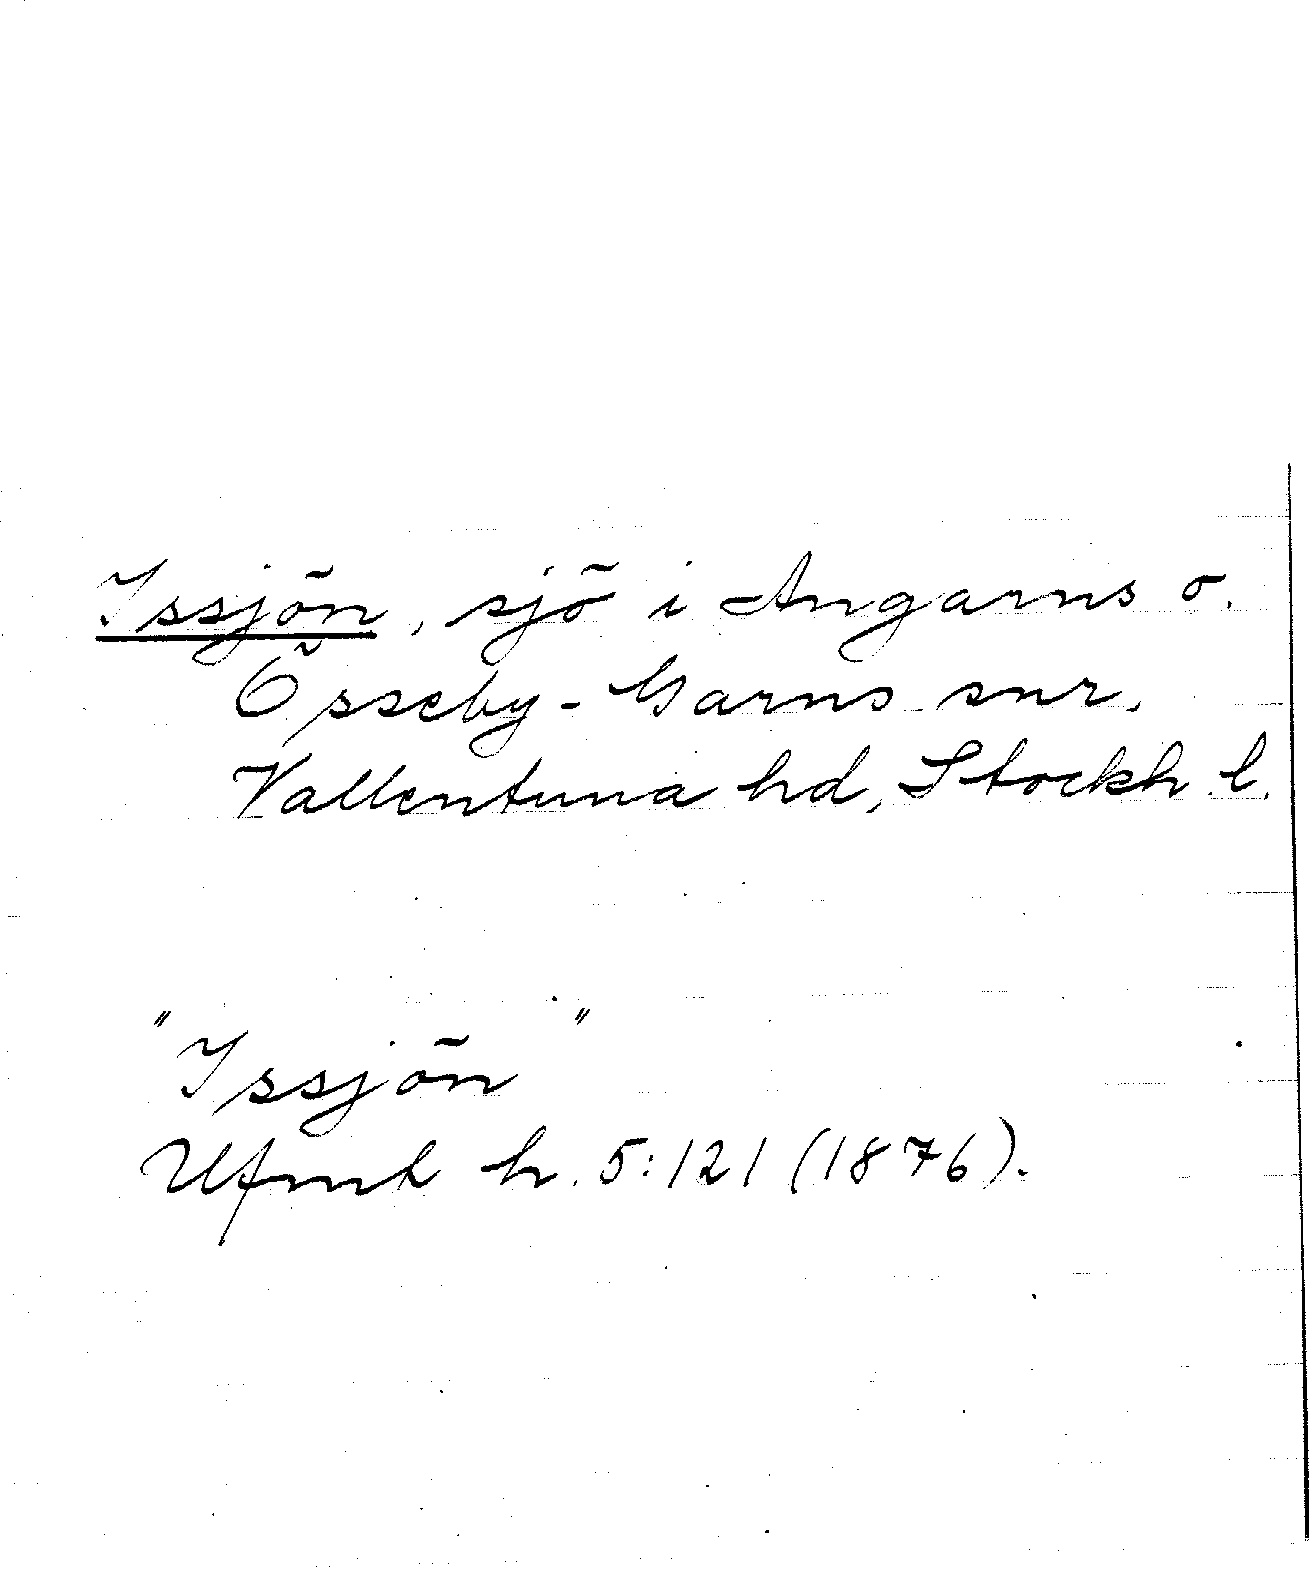 Issjön, sjö i Angarns o.
Össeby-Garns snr.
Vallentuna hd, Stockh l.
"Issjön"
Ufmt h. 5:121 (1876).